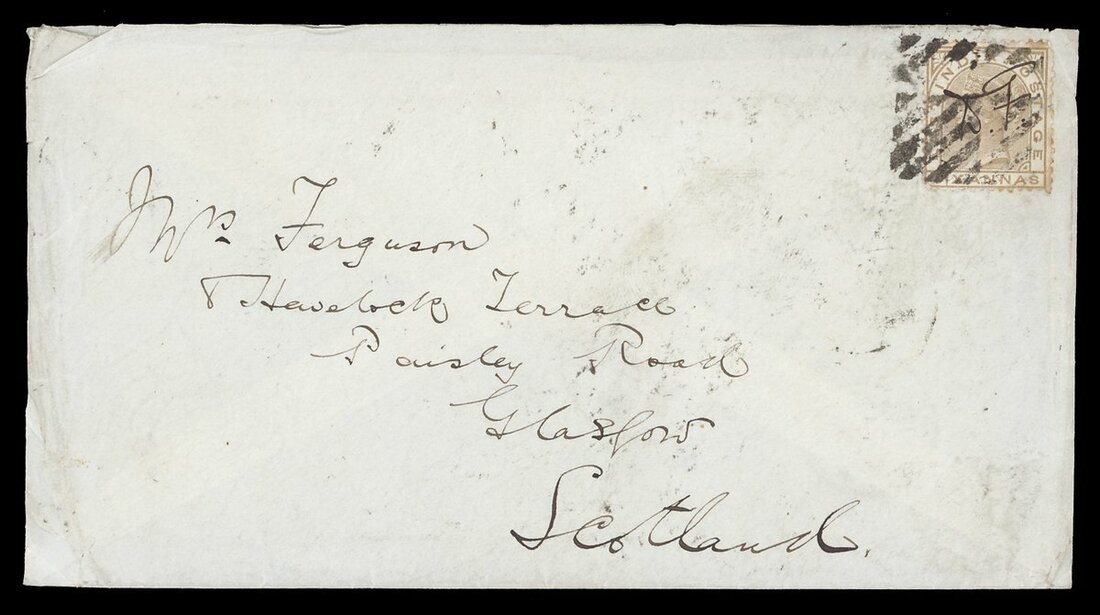 INDIA POSTAGE
SIX ANNAS
Mrs Ferguson
8 Havelock Terrace
Paisley Road
Glasgow
Scotland.